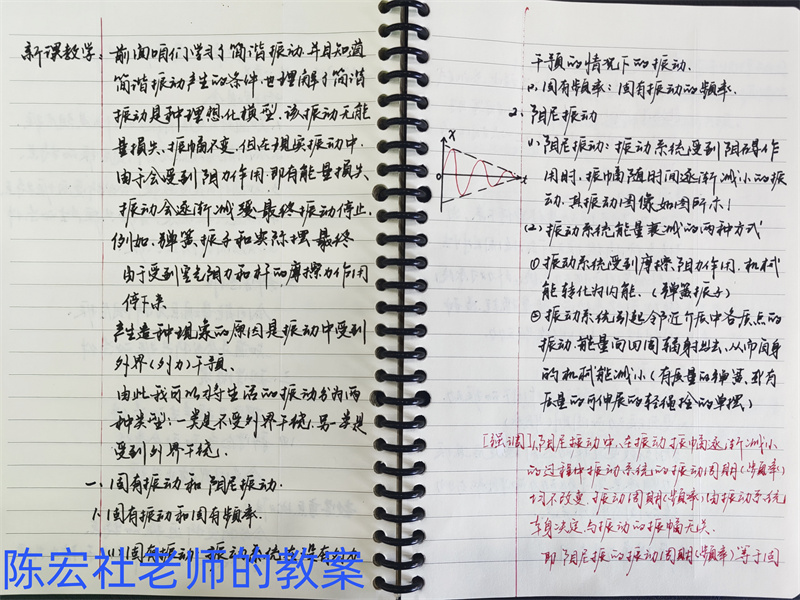 新课教学: 前面咱们学习了简谐振动,并且知道
简谐振动产生的条件,也理解了简谐
振动是种理想化模型,该振动无能
量损失、振幅不变,但在现实振动中,
由于会受到阻力作用,即有能量损失
振动会逐渐减弱,最终振动停止.
例如、弹簧振子和实际摆最终
由于受到空气阻力和杆的摩擦力作用
停下来
产生这种现象的原因是振动中受到
外界(外力)干预.
由此我可以将生活的振动分为两
种类型:一类是不受外界干扰,另一类是
受到外界干扰.
一、固有振动和阻尼振动.
1.固有振动和固有频率.
(1)固有振动:振动系统在没有外力
干预的情况下的振动.
(2)固有频率:固有振动的频率.
2、阻尼振动
x
o
t
(1)阻尼振动:振动系统受到阻碍作
用时,振幅随时间逐渐减小的振
动,其振动图像如图所示!
(2)振动系统能量衰减的两种方式
①振动系统受到摩擦阻力作用,机械
能转化为内能.(弹簧振子)
②振动系统引起邻近介质中各质点的
振动,能量向四周辐射出去、从而自身
的机械能减小(有质量的弹簧、或有
质量的可伸展的轻绳拴的单摆)
[强调]1.阻尼振动中、在振动振幅逐渐减小
的过程中振动系统的振动周期(频率)
均不改变.振动周期(频率)由振动系统
本身决定,与振动的振幅无关.
即阻尼振的振动周期(频率)等于固
陈宏社老师的教案